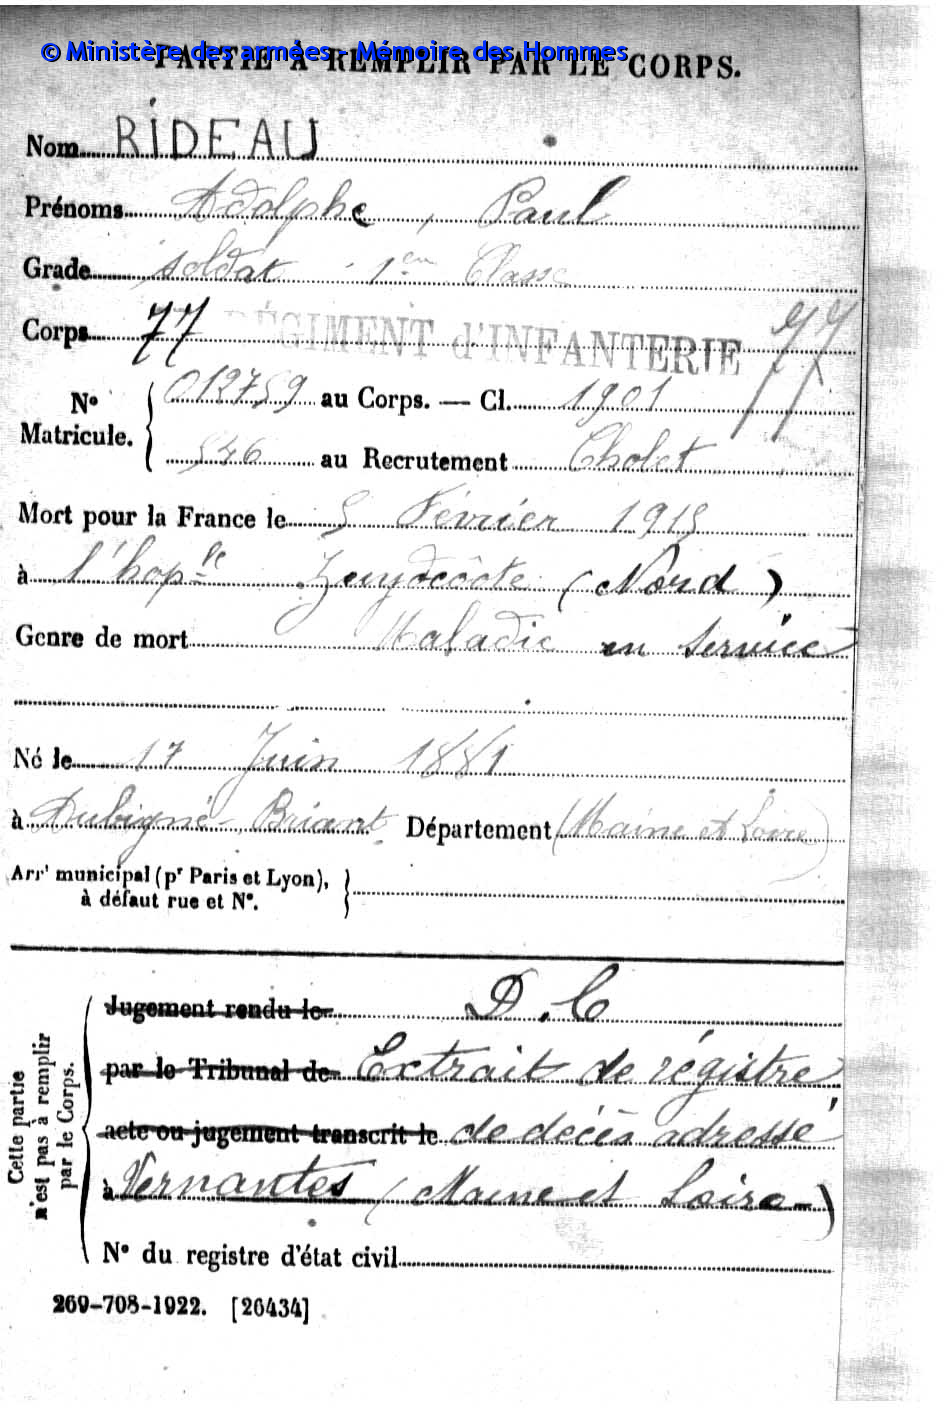 © Ministère des armées - Mémoire des Hommes
PARTIE À REMPLIR PAR LE CORPS.
Nom RIDEAU
Prénoms Adolphe, Paul
Grade soldat 1ère Classe
Corps 77 RÉGIMENT d'INFANTERIE 77
N° Matricule. 012759 au Corps. — Cl. 1901
546 au Recrutement Cholet
Mort pour la France le 5 Février 1915
à l'hop.le Zuydcôote (Nord)
Genre de mort Maladie en service
Né le 17 Juin 1881
à Aubigné-Briant Département (Maine et Loire)
Arr' municipal (pr Paris et Lyon),
à défaut rue et N°.
Cette partie n'est pas à remplir par le Corps.
Jugement rendu le D.C
par le Tribunal de Extrait de régistre
acte ou jugement transcrit le de décès adressé
à Vernantes (Maine et Loire)
N° du registre d'état civil
269-708-1922. [26434]